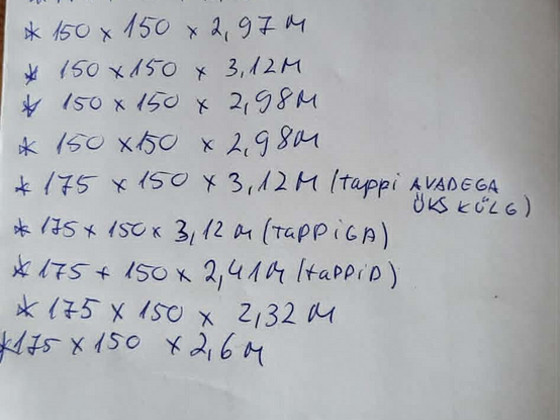 * 150 x 150 x 2,97 M
* 150 x 150 x 3,12 M
* 150 x 150 x 2,98 M
* 150 x 150 x 2,98 M
* 175 x 150 x 3,12 M (tappi AVADEGA
ÜKS KÜLG)
* 175 x 150 x 3,12 M (TAPPIGA)
* 175 + 150 x 2,41 M (tAPPID)
* 175 x 150 x 2,32 M
* 175 x 150 x 2,6 M